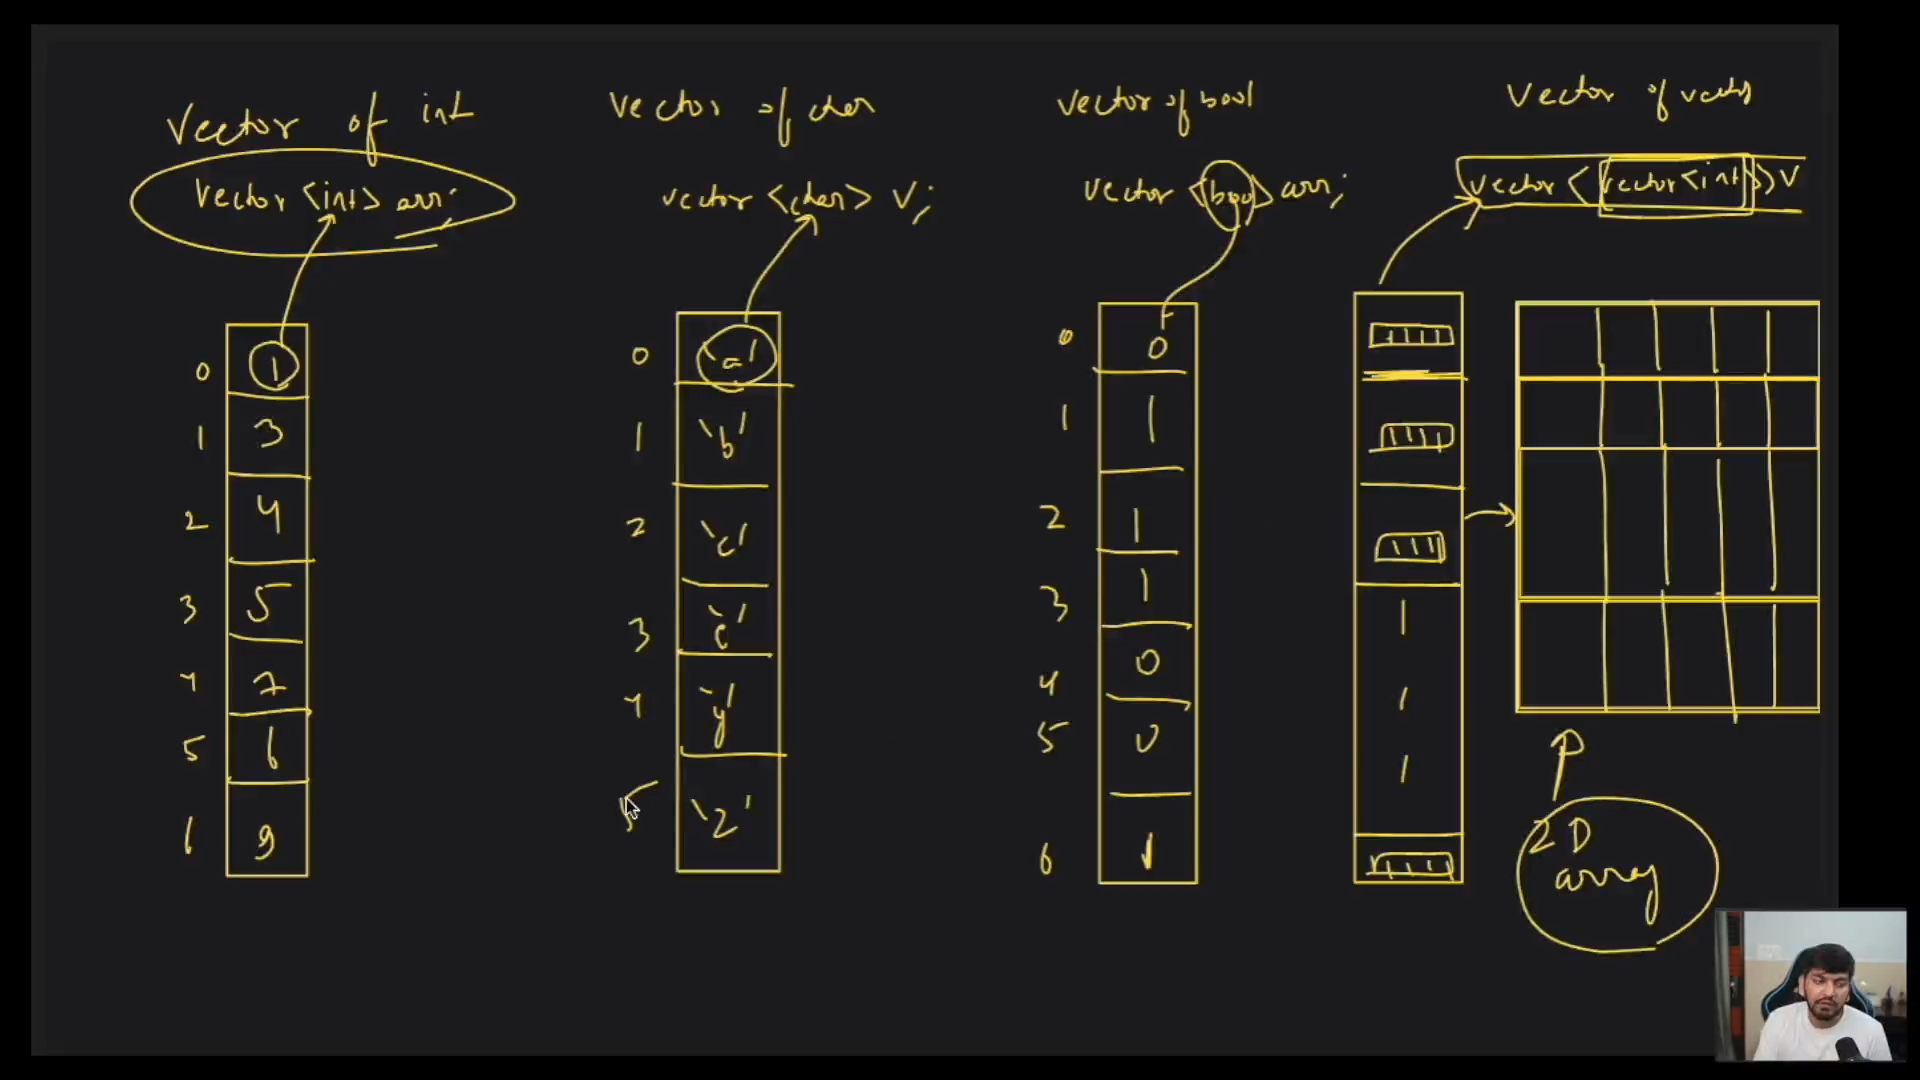 Vector of int
vector <int> arr;
0 1
1 3
2 4
3 5
4 7
5 6
6 9
Vector of char
vector <char> V;
0 'a'
1 'b'
2 'c'
3 'c'
4 'y'
5 'z'
Vector of bool
vector <bool> arr;
0 0
1 1
2 1
3 1
4 0
5 0
6 1
Vector of vector
vector < vector<int> > V
2D
array